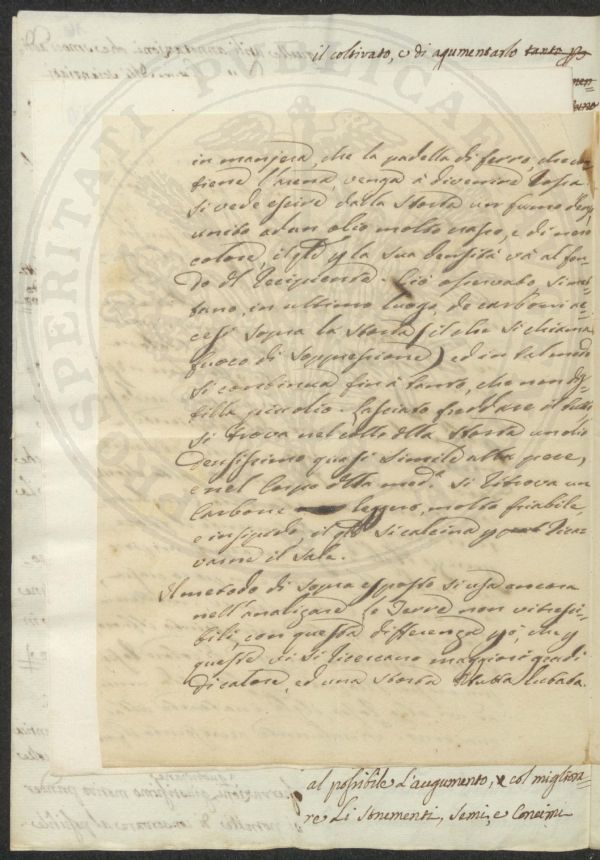 il coltivato, e di agumentarlo tanto
in maniera, che la padella di ferro, che con
tiene l'arena, venga à divenire rossa
si vede escire dalla storta un fumo denso
unito ad un olio molto crasso, e di nero
colore, il qle p la sua densità và al fon
do del recipiente. Ciò osservato, si met
tano, in ultimo luogo, de carboni ac
cesi sopra la storta (il che si chiama
fuoco di soppressione) ed in tal modo
si continua fin à tanto, che non di
stilla più olio. Lasciato freddare il tutto
si trova nel collo della storta un olio
densissimo quasi simile alla pece,
e nel corpo della med.a si ritrova un
carbone leggero, molto friabile,
e insipido, il qle si calcina p rica
varne il sale.
Il metodo di sopra esposto si usa ancora
nell'analizare le Terre non vitresci=
bili, con questa differenza però, che p
queste vi si ricercano maggiori gradi
di calore, ed una storta lutata.
al possibile l'augumento, e col miglio
re li strumenti, semi, e concimi
PROSPERITATI PUBLICAE